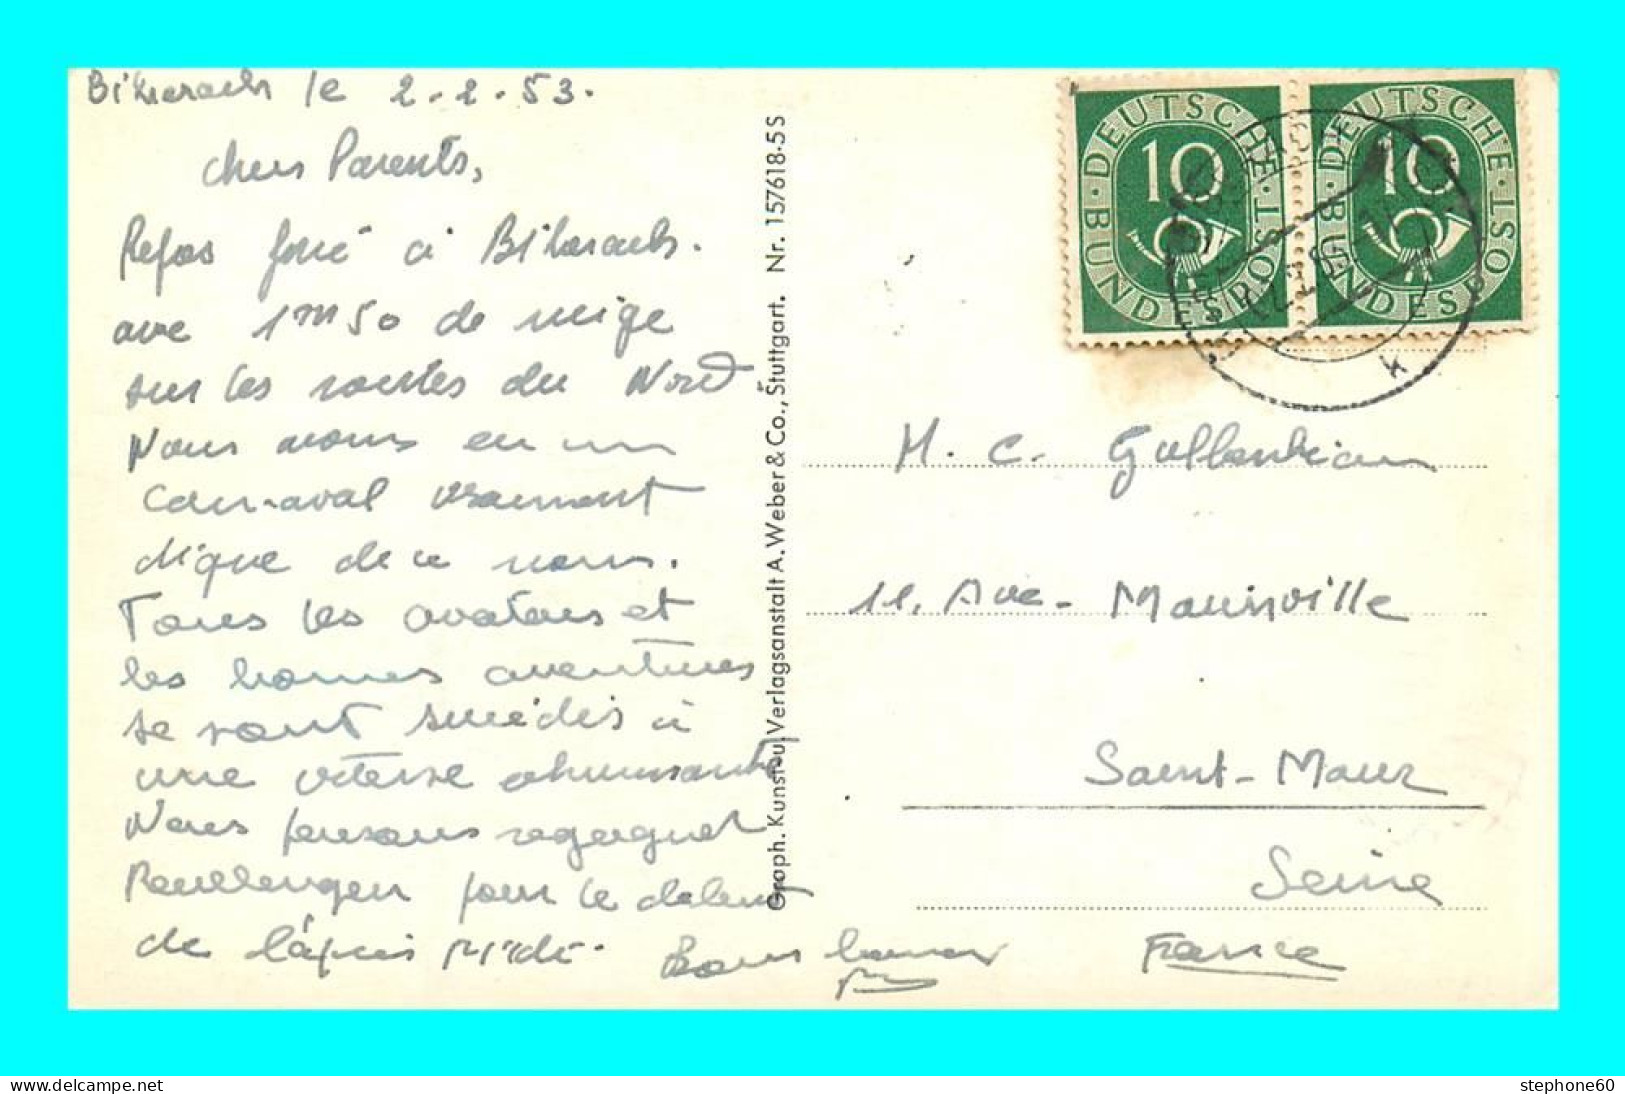 Biberach le 2.2.53.
Chers Parents,
Repos forcé à Biberach.
avec 1m50 de neige
sur les routes du Nord.
Nous avons eu un
Carnaval vraiment
digne de nous.
Tous les avatars et
les bonnes aventures
se sont succédés à
une vitesse ahurissante
Nous pensons regagner
Reutlingen pour le début
de l'après midi. Bons baisers
Graph. Kunst- u. Verlagsanstalt A. Weber & Co., Stuttgart. Nr. 157618-5 S
DEUTSCHE BUNDESPOST 10
DEUTSCHE BUNDESPOST 10
k
M. C. Gulbenkian
11, Ave- Maurisville
Saint-Maur
Seine
France
delcampe.net
stephone60